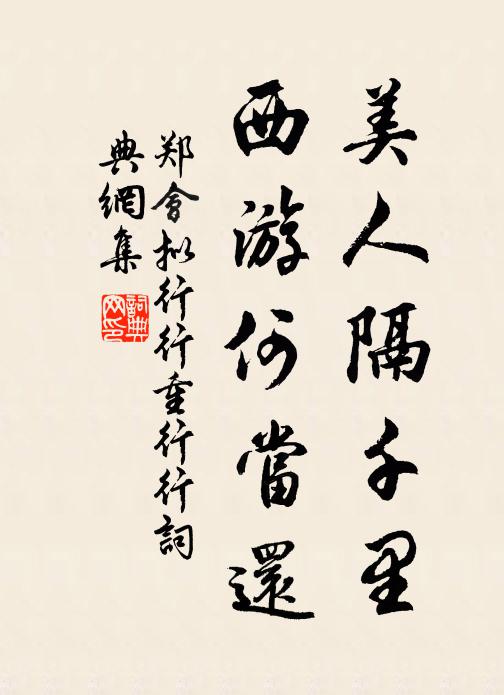 美人隔千里
西游何當還
郑會拟行行重行行詞
典網集
詞典网印